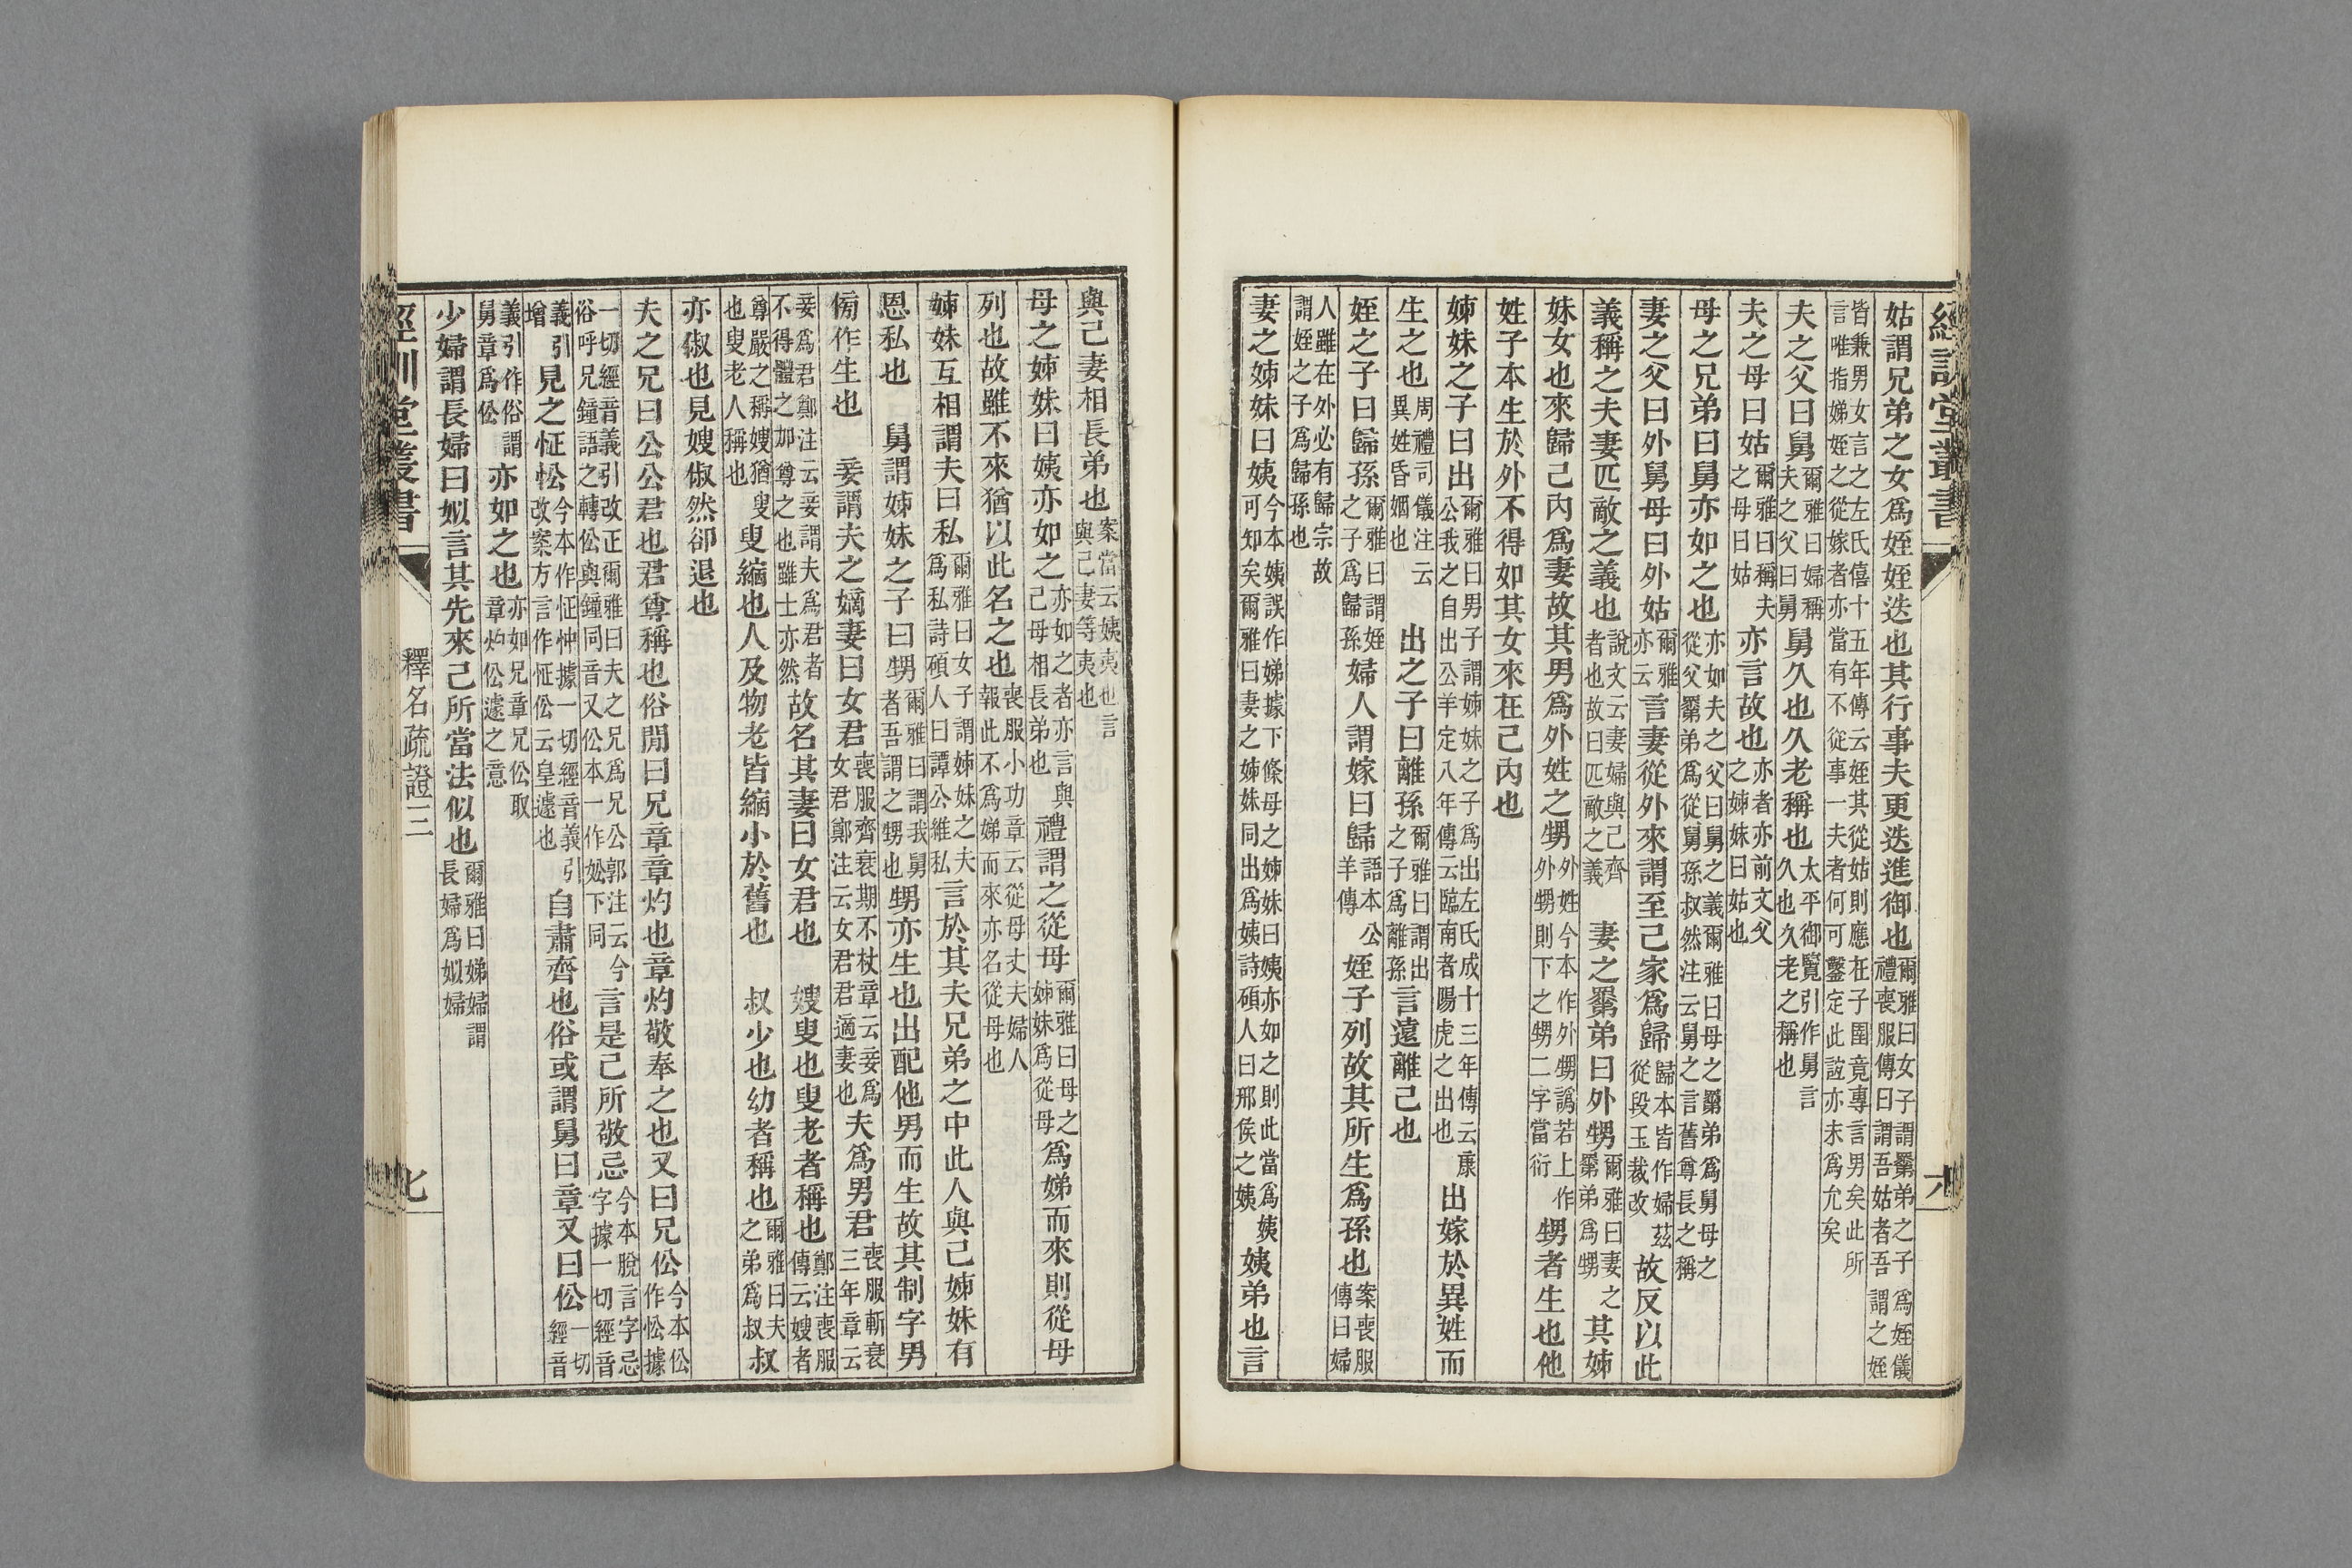 經訓堂叢書
六
姑謂兄弟之女爲姪姪迭也其行事夫更迭進御也爾雅曰女子謂晜弟之子爲姪儀禮喪服傳曰謂吾姑者吾謂之姪
皆兼男女言之左氏僖十五年傳云姪其從姑則應在子圉竟專言男矣此所言唯指娣姪之從嫁者亦當有不從事一夫者何可鑿定此詃亦未爲允矣
夫之父曰舅爾雅曰婦稱夫之父曰舅舅久也久老稱也太平御覽引作舅言久也久老之稱也
夫之母曰姑爾雅曰稱夫之母曰姑亦言故也亦者亦前文父之姊妹曰姑也
母之兄弟曰舅亦如之也亦如夫之父曰舅之義爾雅曰母之晜弟爲舅母之從父晜弟爲從舅孫叔然注云舅之言舊尊長之稱
妻之父曰外舅母曰外姑爾雅亦云言妻從外來謂至己家爲歸歸本皆作婦茲從段玉裁改故反以此
義稱之夫妻匹敵之義也說文云妻婦與己齊者也故曰匹敵之義妻之晜弟曰外甥爾雅曰妻之晜弟爲甥其姊
妹女也來歸己內爲妻故其男爲外姓之甥外姓今本作外甥譌若上作外甥則下之甥二字當衍甥者生也他
姓子本生於外不得如其女來在己內也
姊妹之子曰出爾雅曰男子謂姊妹之子爲出左氏成十三年傳云康公我之自出公羊定八年傳云臨南者陽虎之出也出嫁於異姓而
生之也周禮司儀注云異姓昏姻也出之子曰離孫爾雅曰謂出之子爲離孫言遠離己也
姪之子曰歸孫爾雅曰謂姪之子爲歸孫婦人謂嫁曰歸語本公羊傳姪子列故其所生爲孫也案喪服傳曰婦
人雖在外必有歸宗故謂姪之子爲歸孫也
妻之姊妹曰姨今本姨誤作娣據下條母之姊妹曰姨亦如之則此當爲姨可知矣爾雅曰妻之姊妹同出爲姨詩碩人曰邢侯之姨姨弟也言
與己妻相長弟也案當云姨夷也言與己妻等夷也
母之姊妹曰姨亦如之亦如之者亦言與己母相長弟也禮謂之從母爾雅曰母之姊妹爲從母爲娣而來則從母
列也故雖不來猶以此名之也喪服小功章云從母丈夫婦人報此不爲娣而來亦名從母也
姊妹互相謂夫曰私爾雅曰女子謂姊妹之夫爲私詩碩人曰譚公維私言於其夫兄弟之中此人與己姊妹有
恩私也　舅謂姊妹之子曰甥爾雅曰謂我舅者吾謂之甥也甥亦生也出配他男而生故其制字男
傍作生也　妾謂夫之嫡妻曰女君喪服齊衰期不杖章云妾爲女君鄭注云女君君適妻也夫爲男君喪服斬衰三年章云
妾爲君鄭注云妾謂夫爲君者不得體之加尊之也雖士亦然故名其妻曰女君也　嫂叟也叟老者稱也鄭注喪服傳云嫂者
尊嚴之稱嫂猶叟也叟老人稱也叟縮也人及物老皆縮小於舊也　叔少也幼者稱也爾雅曰夫之弟爲叔叔
亦俶也見嫂俶然卻退也
夫之兄曰公公君也君尊稱也俗閒曰兄章章灼也章灼敬奉之也又曰兄伀今本伀作忪據
一切經音義引改正爾雅曰夫之兄爲兄公郭注云今俗呼兄鐘語之轉伀與鐘同音又伀本一作妐下同言是己所敬忌今本脫言字忌字據一切經音
義引增見之怔忪今本作怔忡據一切經音義引改案方言作怔伀云皇遽也自肅齊也俗或謂舅曰章又曰伀一切經音
義引作俗謂舅章爲伀亦如之也亦如兄章兄伀取章灼伀遽之意
少婦謂長婦曰姒言其先來己所當法似也爾雅曰娣婦謂長婦爲姒婦
經訓堂叢書
釋名疏證三
七